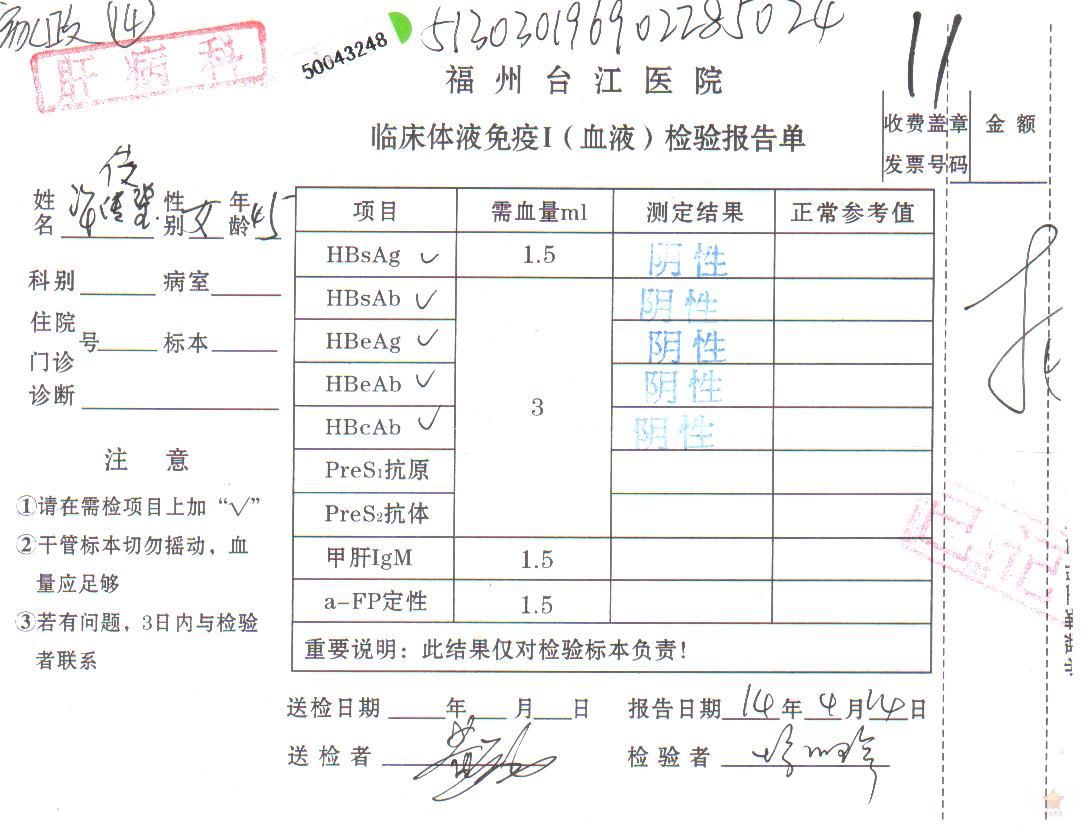 (14)
肝病科
50043248
513030196902285024
11
福州台江医院
临床体液免疫I（血液）检验报告单
收费盖章 金额
发票号码
姓名 性别 女 年龄 45
科别 病室
住院
门诊 号 标本
诊断
项目 需血量ml 测定结果 正常参考值
HBsAg ✓ 1.5 阴性
HBsAb ✓ 阴性
HBeAg ✓ 阴性
HBeAb ✓ 3 阴性
HBcAb ✓ 阴性
PreS₁抗原
PreS₂抗体
甲肝IgM 1.5
a-FP定性 1.5
重要说明：此结果仅对检验标本负责！
注意
①请在需检项目上加“√”
②干管标本切勿摇动，血
量应足够
③若有问题，3日内与检验
者联系
送检日期 年 月 日 报告日期 14 年 4 月 14 日
送检者 检验者